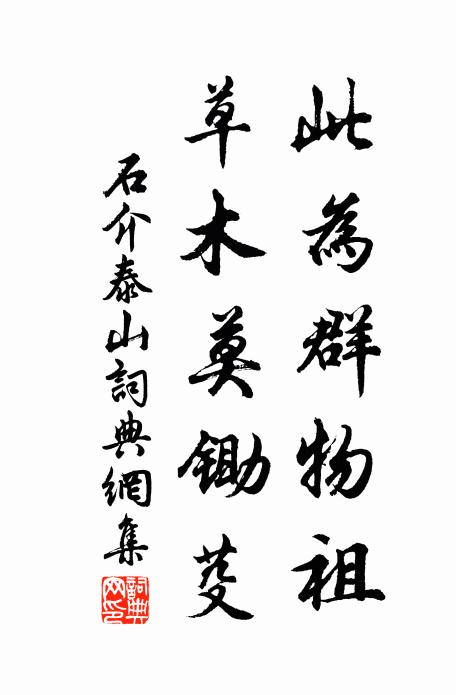 此為群物祖
草木莫鋤芟
石介泰山詞典網集
詞典网印